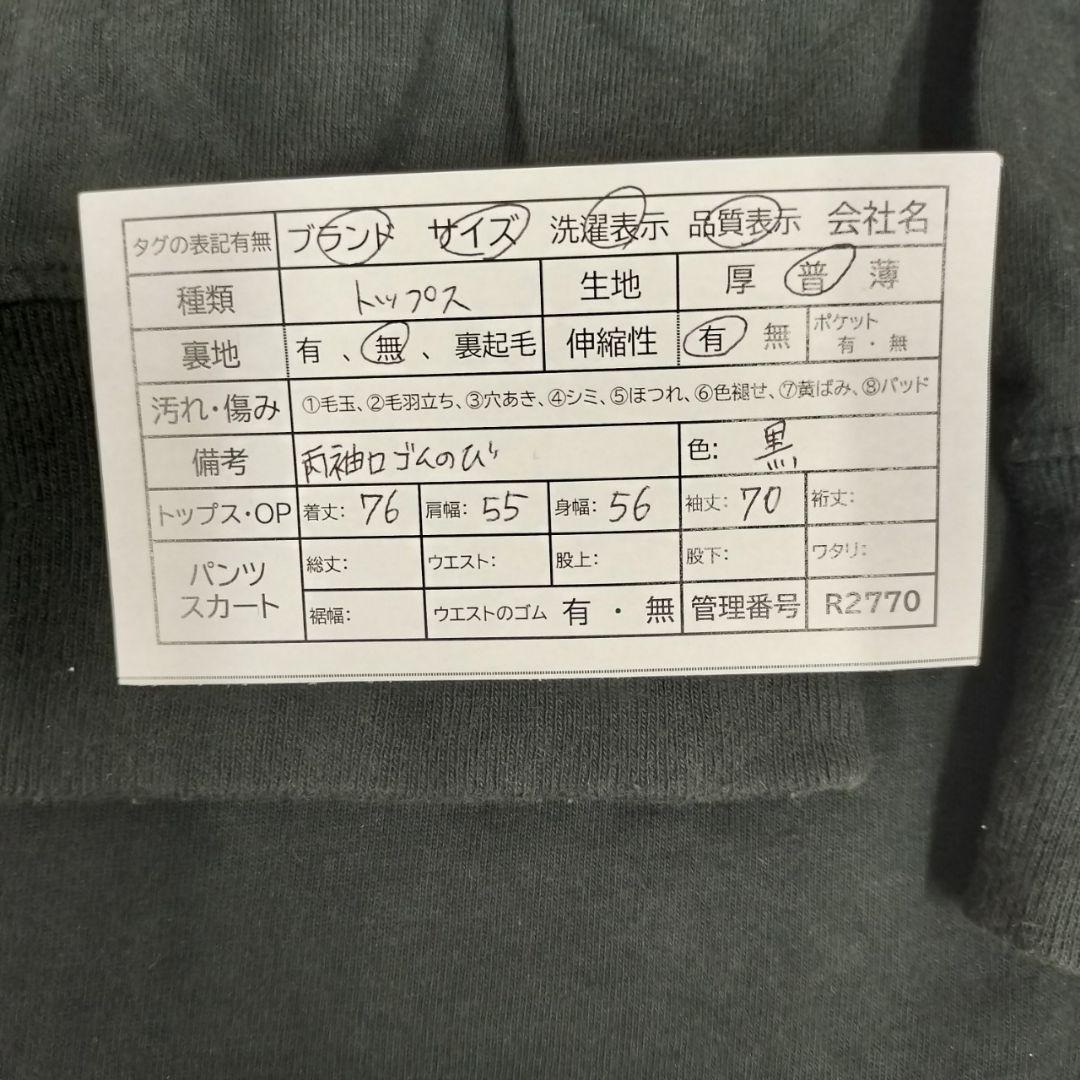 タグの表記有無 ブランド サイズ 洗濯表示 品質表示 会社名
種類 トップス 生地 厚 普 薄
裏地 有 、無 、裏起毛 伸縮性 有 無 ポケット 有・無
汚れ・傷み ①毛玉、②毛羽立ち、③穴あき、④シミ、⑤ほつれ、⑥色褪せ、⑦黄ばみ、⑧パッド
備考 両袖口ゴムのび 色: 黒
トップス・OP 着丈: 76 肩幅: 55 身幅: 56 袖丈: 70 裄丈:
パンツ スカート 総丈: ウエスト: 股上: 股下: ワタリ:
裾幅: ウエストのゴム 有 ・ 無 管理番号 R2770